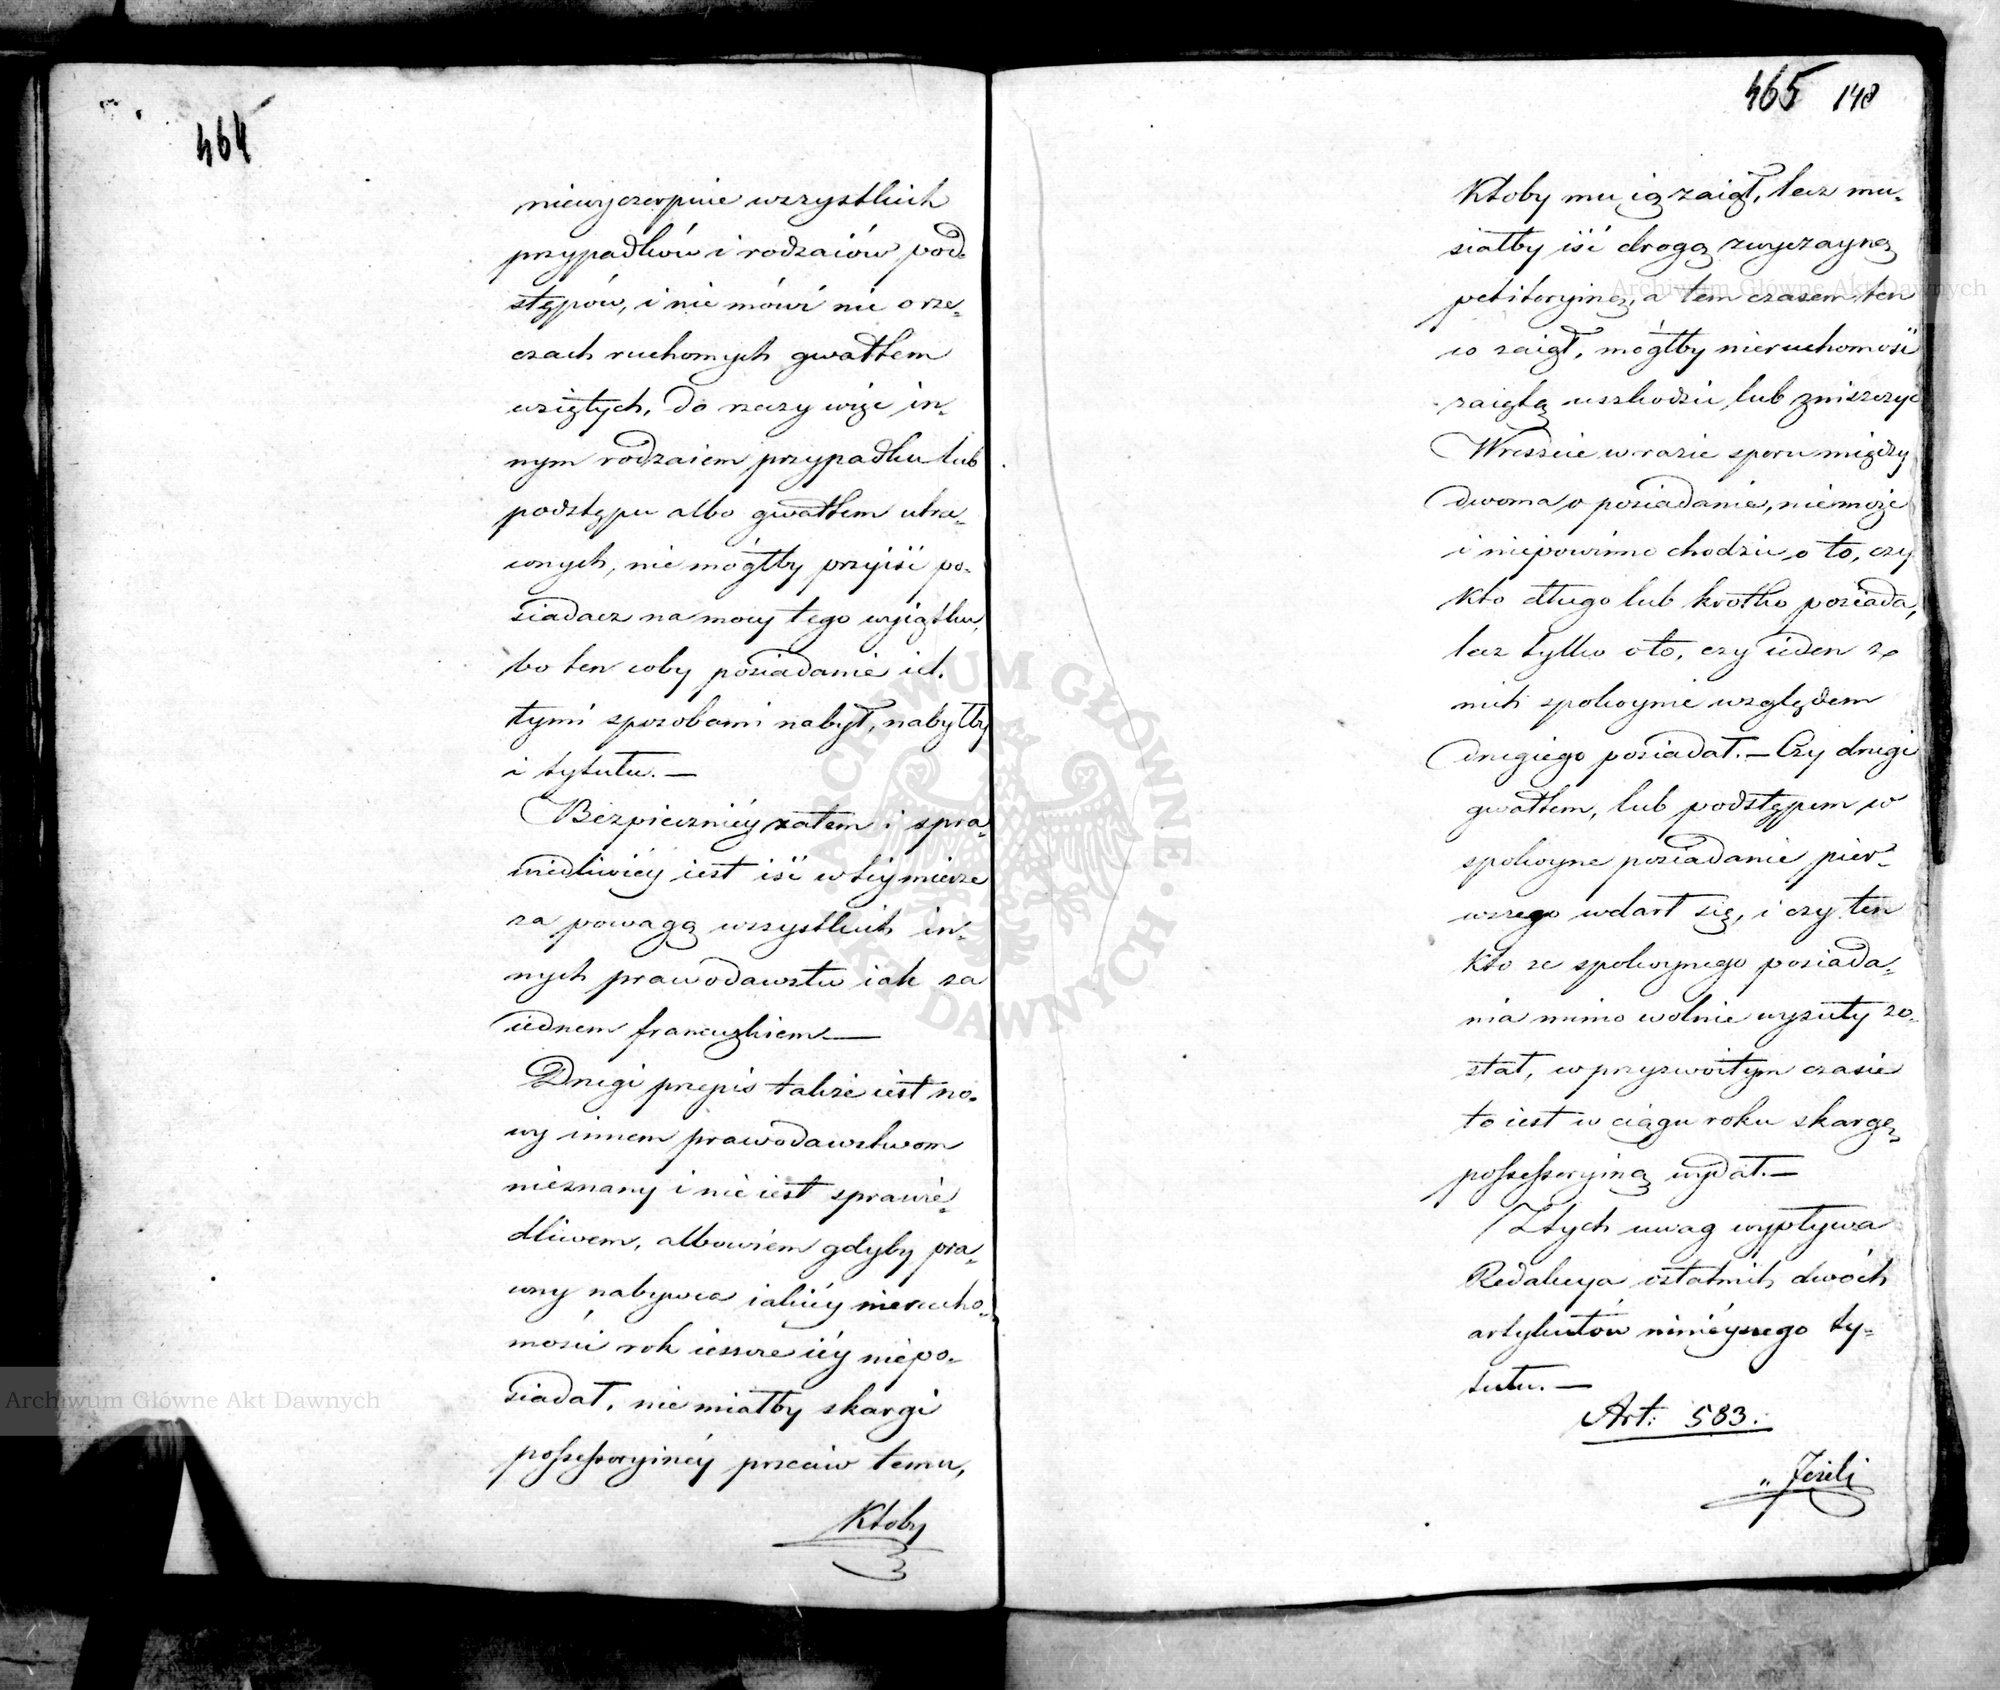 464
niewyczerpuie wszystkich
przypadków i rodzaiów pod-
stępów, i nie mówi nic o rze-
czach ruchomych gwałtem
wziętych, do rzeczy więc in-
nym rodzaiem przypadku lub
podstępu albo gwałtem utra-
conych, nie mógłby przyiść po-
siadacz na mocy tego wyiątku,
bo ten coby posiadanie ich
tymi sposobami nabył, nabyłby
i tytułu. —
Bezpieczniéy zatem i spra-
wiedliwiéy iest iść w téy mierze
za powagą wszystkich in-
nych prawodawstw iak za
iednem francuzkiem —
Drugi przepis także iest no-
wy innem prawodawstwom
nieznany i nie iest sprawie-
dliwem, albowiem gdyby pra-
wny nabywca iakiéy nierucho-
mości rok ieszcze iéy niepo-
siadał, nie miałby skargi
possessoryinéy przeciw temu,
Ktoby
465 148
Ktoby mu ią zaiął, lecz mu-
siałby iść drogą zwyczayną
petitoryiną, a tem czasem ten
co zaiął, mógłby nieruchomość
zaiętą uszkodzić lub zniszczyć
Wreszcie w razie sporu między
dwoma o posiadanie, niemoże
i niepowinno chodzić o to, czy
kto długo lub krótko posiada,
lecz tylko o to, czy ieden z
nich spokoynie względem
drugiego posiadał. — Czy drugi
gwałtem, lub podstępem w
spokoyne posiadanie pier-
wszego wdarł się, i czy ten
kto ze spokoynego posiada-
nia mimo wolnie wyzuty zo-
stał, w przyzwoitym czasie
to iest w ciągu roku skargę
possessoryiną wydał. —
Z tych uwag wypływa
Redakcya ostatnich dwóch
artykułów ninieyszego ty-
tułu. —
Art: 583.
„Jeżeli
Archiwum Główne Akt Dawnych
Archiwum Główne Akt Dawnych
ARCHIWUM GŁÓWNE AKT DAWNYCH